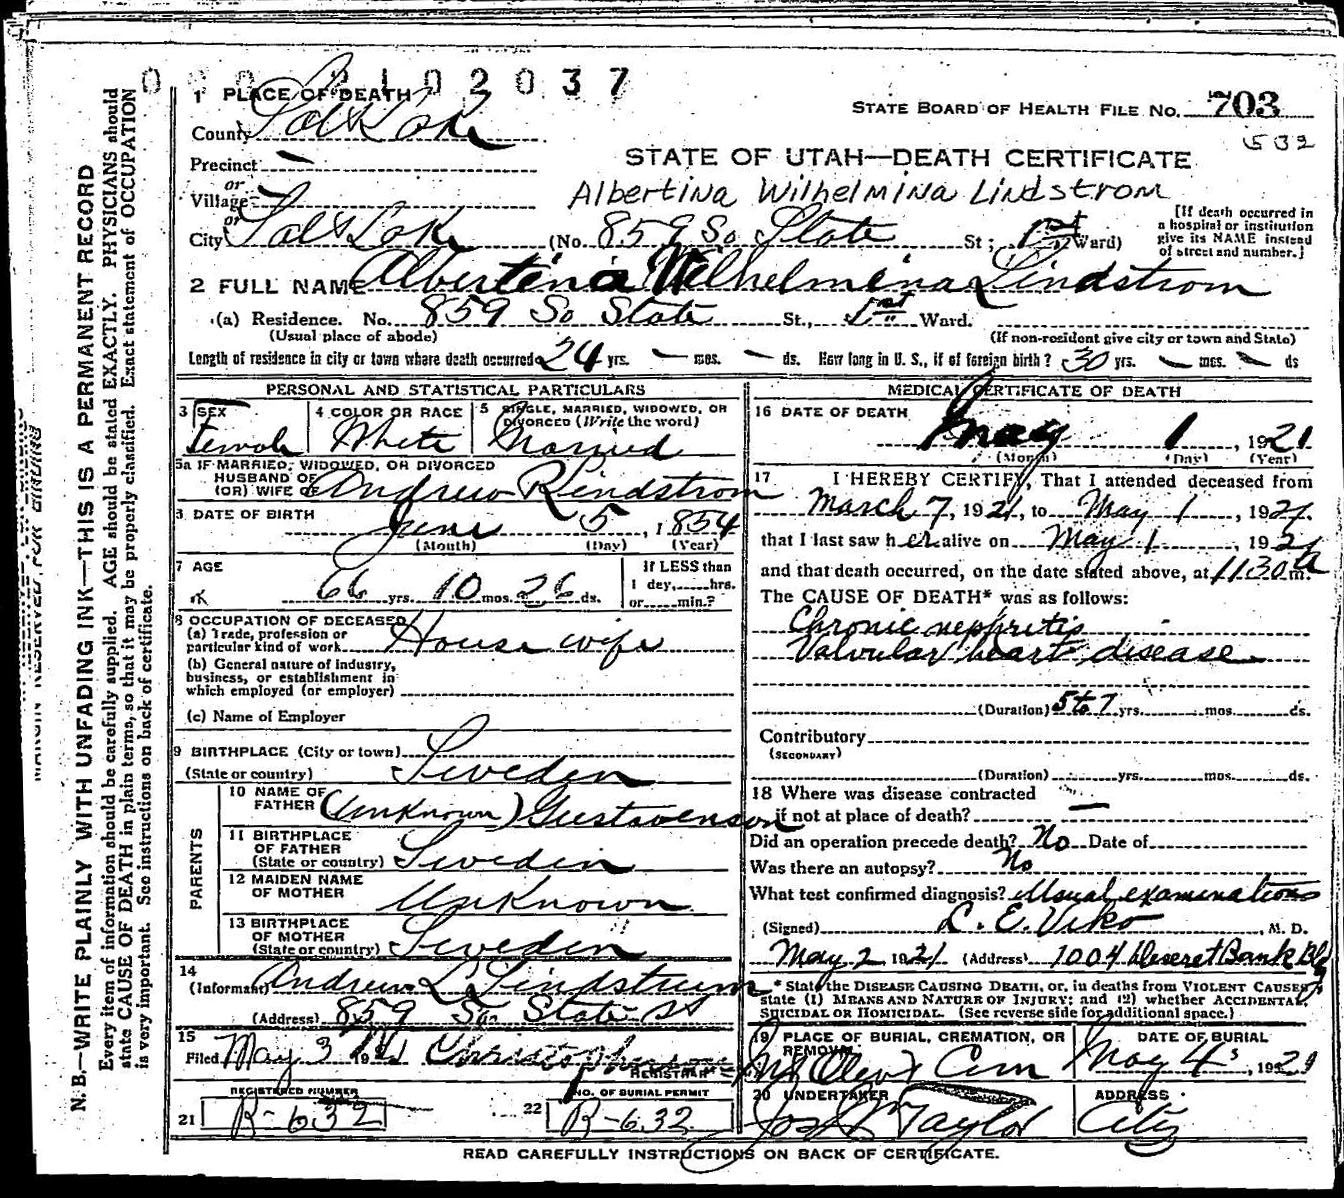 2102037
1 PLACE OF DEATH
STATE BOARD OF HEALTH FILE NO. 703
County Salt Lake
532
Precinct —
STATE OF UTAH—DEATH CERTIFICATE
or
Village —
Albertina Wilhelmina Lindstrom
or
City Salt Lake (No. 859 So State St; 1st Ward)
[If death occurred in
a hospital or institution
give its NAME instead
of street and number.]
2 FULL NAME Albertina Wilhelmina Lindstrom
(a) Residence. No. 859 So State St., 1st Ward.
(Usual place of abode) (If non-resident give city or town and State)
Length of residence in city or town where death occurred 24 yrs. — mos. — ds. How long in U. S., if of foreign birth? 30 yrs. — mos. — ds
PERSONAL AND STATISTICAL PARTICULARS
3 SEX
Female
4 COLOR OR RACE
White
5 SINGLE, MARRIED, WIDOWED, OR
DIVORCED (Write the word)
Married
5a IF MARRIED, WIDOWED, OR DIVORCED
HUSBAND OF
(OR) WIFE OF Andrew Lindstrom
DATE OF BIRTH
June 5, 1854
(Month) (Day) (Year)
7 AGE
66 yrs. 10 mos. 26 ds.
If LESS than
1 day,......hrs.
or......min.?
8 OCCUPATION OF DECEASED
(a) Trade, profession or
particular kind of work House wife
(b) General nature of industry,
business, or establishment in
which employed (or employer)
(c) Name of Employer
9 BIRTHPLACE (City or town)
(State or country) Sweden
PARENTS
10 NAME OF
FATHER (Unknown) Gustavenson
11 BIRTHPLACE
OF FATHER
(State or country) Sweden
12 MAIDEN NAME
OF MOTHER Unknown
13 BIRTHPLACE
OF MOTHER
(State or country) Sweden
14
(Informant) Andrew L Lindstrum
(Address) 859 So State St
15
Filed May 3 192 Christopherson
REGISTRAR
REGISTERED NUMBER
21 B-632
NO. OF BURIAL PERMIT
22 B-632
MEDICAL CERTIFICATE OF DEATH
16 DATE OF DEATH
May 1, 1921
(Month) (Day) (Year)
17 I HEREBY CERTIFY, That I attended deceased from
March 7, 1921, to May 1, 1921.
that I last saw her alive on May 1 1921
and that death occurred, on the date stated above, at 11:30 a m.
The CAUSE OF DEATH* was as follows:
Chronic nephritis
Valvular heart disease
(Duration) 5 to 7 yrs. mos. ds.
Contributory
(SECONDARY)
(Duration) yrs. mos. ds.
18 Where was disease contracted
if not at place of death? —
Did an operation precede death? No Date of
Was there an autopsy? No
What test confirmed diagnosis? Usual examinations
(Signed) L. E. Viko M. D.
May 2 1921 (Address) 1004 Deseret Bank Bldg
* State the DISEASE CAUSING DEATH, or, in deaths from VIOLENT CAUSES,
state (1) MEANS AND NATURE OF INJURY; and (2) whether ACCIDENTAL,
SUICIDAL OR HOMICIDAL. (See reverse side for additional space.)
19 PLACE OF BURIAL, CREMATION, OR
REMOVAL
Mt Olivet Cem
DATE OF BURIAL
May 4, 1921
20 UNDERTAKER
Jos Wm Taylor
ADDRESS
City
READ CAREFULLY INSTRUCTIONS ON BACK OF CERTIFICATE.
MARGIN RESERVED FOR BINDING
N. B.—WRITE PLAINLY WITH UNFADING INK—THIS IS A PERMANENT RECORD
Every item of information should be carefully supplied. AGE should be stated EXACTLY. PHYSICIANS should
state CAUSE OF DEATH in plain terms, so that it may be properly classified. Exact statement of OCCUPATION
is very important. See instructions on back of certificate.